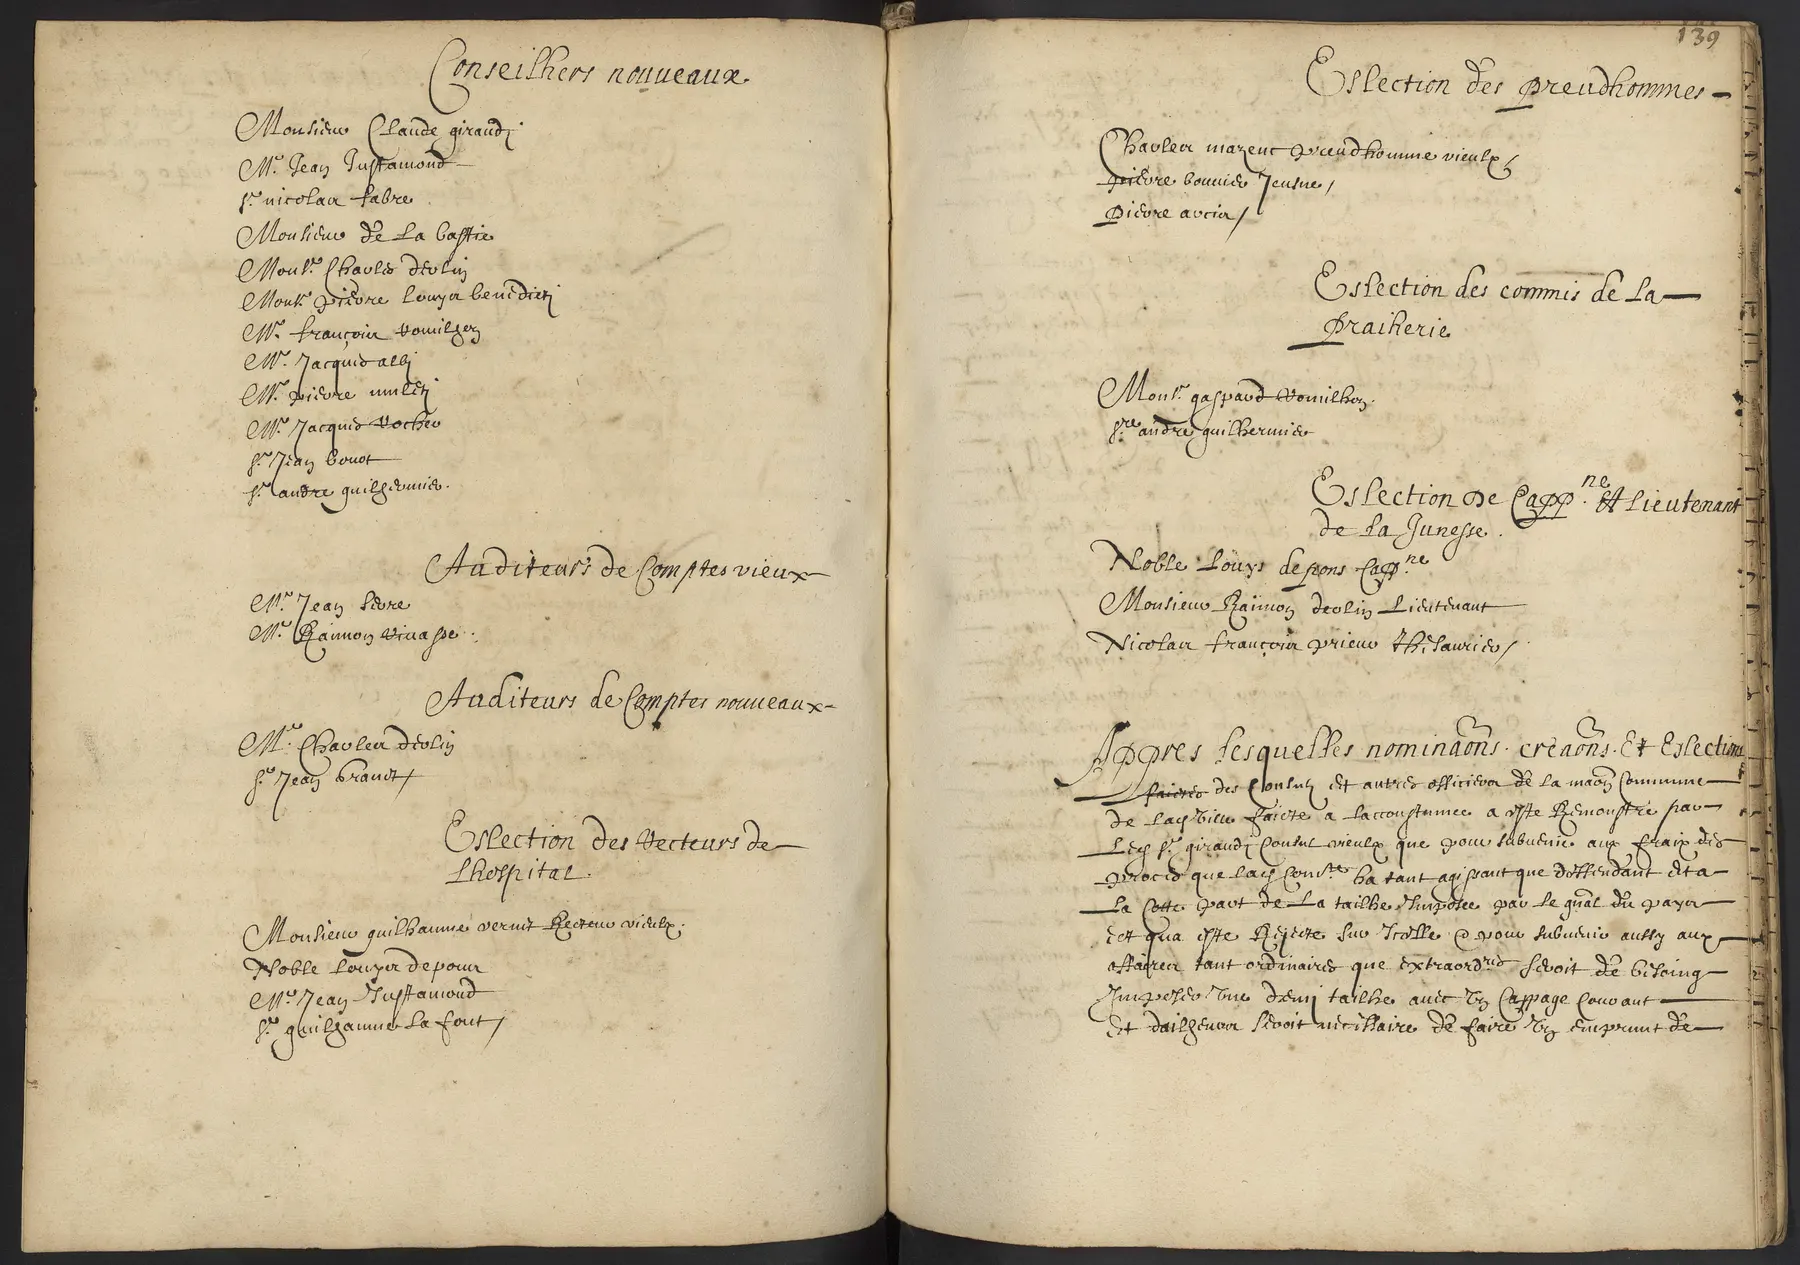 Conseilhers nouveaux.
Monsieur Claude giraudy
Mr. Jean Justamond
sr. nicolas fabre
Monsieur de la bastie
Monsr. Charles devlin
Monsr. pierre louys benedicti
Mr. françois romilhen
Mr. Jacques alby
Mr. pierre muleti
Mr. Jacques rocher
sr. Jean bonot
sr. andre guilhermier.
Auditeurs de Comptes vieux
Mr. Jean serre
Mr. Raimon vivasse.
Auditeurs de Comptes nouveaux
Mr. Charles devlin
sr. Jean brauct
Eslection des Recteurs de
lhospital.
Monsieur guilhaume vernet Recteur vieulx.
Noble louys depons
Mr. Jean Justamond
sr. guilhaume la font
139
Eslection des preudhommes
Charles mazent preudhomme vieulx
pierre bonnier Jeusne
pierre
Eslection des commis de la
praiherie
Monsr. gaspard romilhen.
sre andre guilhermier
Eslection de Cappne. Et lieutenant
de la Junesse.
Noble Louys depons Cappne
Monsieur Raimon devlin Lieutenant
Nicolas françois prieur thesaurier
Appres lesquelles nominaons. creaons. Et Eslections
faictes des Consulz et autres officiers de la maon Commune
de lad ville faicte a laccoustumee a este Remonstre par
Led sr. giraudy Consul vieulx que pour subvenir aux fraix des
proces que lad Comte ha tant agissant que deffendant et a
la Cotte part de la tailhe Imposee par le gnal du
est qua este Rejecte sur Icelle & pour subvenir aussy aux
affaires tant ordinaires que extraordres seroit de besoing
Imposer Une demi tailhe avec Un Cappage Courant
Et dailheurs seroit necessaire de faire Un emprunt de